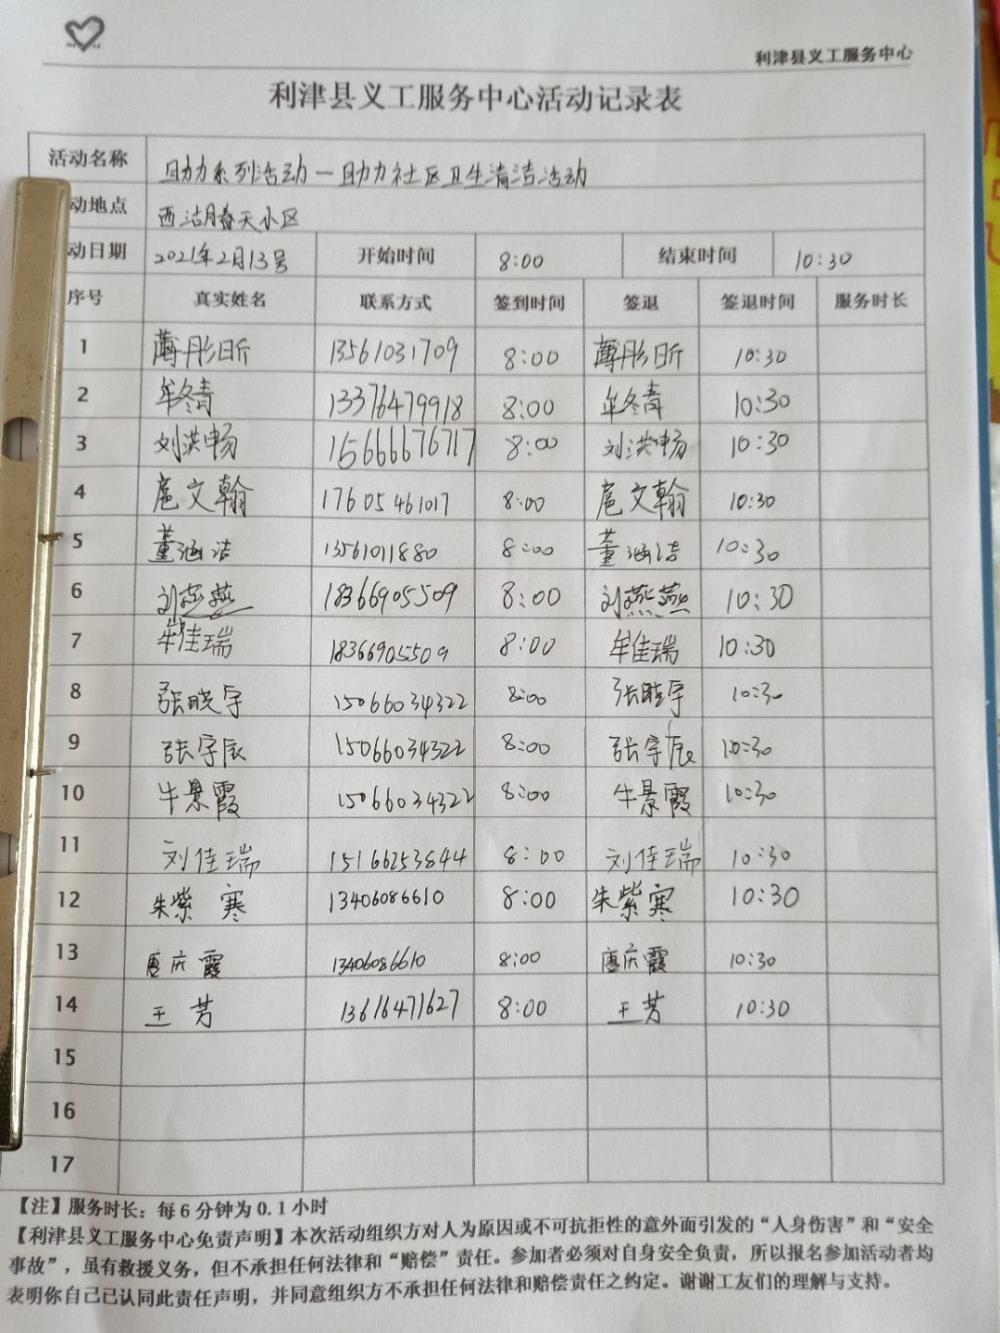 利津县义工服务中心
利津县义工服务中心活动记录表
活动名称 助力系列活动一助力社区卫生清洁活动
动地点 西湖春天小区
动日期 2021年2月13号 开始时间 8:00 结束时间 10:30
序号 真实姓名 联系方式 签到时间 签退 签退时间 服务时长
1 薄彤昕 13561031709 8:00 薄彤昕 10:30
2 牟冬青 13376479918 8:00 牟冬青 10:30
3 刘洪畅 15666676717 8:00 刘洪畅 10:30
4 扈文翰 17605461017 8:00 扈文翰 10:30
5 董涵洁 13561011880 8:00 董涵洁 10:30
6 刘燕燕 18366905509 8:00 刘燕燕 10:30
7 牟佳瑞 18366905509 8:00 牟佳瑞 10:30
8 张晓宇 15066034322 8:00 张晓宇 10:30
9 张宇辰 15066034322 8:00 张宇辰 10:30
10 牛景霞 15066034322 8:00 牛景霞 10:30
11 刘佳瑞 15166253844 8:00 刘佳瑞 10:30
12 朱紫寒 13406086610 8:00 朱紫寒 10:30
13 唐庆霞 13406086610 8:00 唐庆霞 10:30
14 王芳 13616471627 8:00 王芳 10:30
15
16
17
【注】服务时长：每6分钟为0.1小时
【利津县义工服务中心免责声明】本次活动组织方对人为原因或不可抗拒性的意外而引发的“人身伤害”和“安全
事故”，虽有救援义务，但不承担任何法律和“赔偿”责任。参加者必须对自身安全负责，所以报名参加活动者均
表明你自己已认同此责任声明，并同意组织方不承担任何法律和赔偿责任之约定。谢谢工友们的理解与支持。